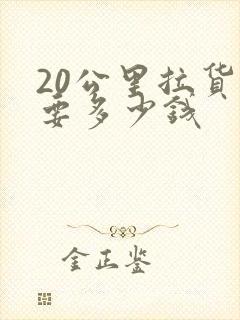 20公里拉货
要多少钱
金正鉴